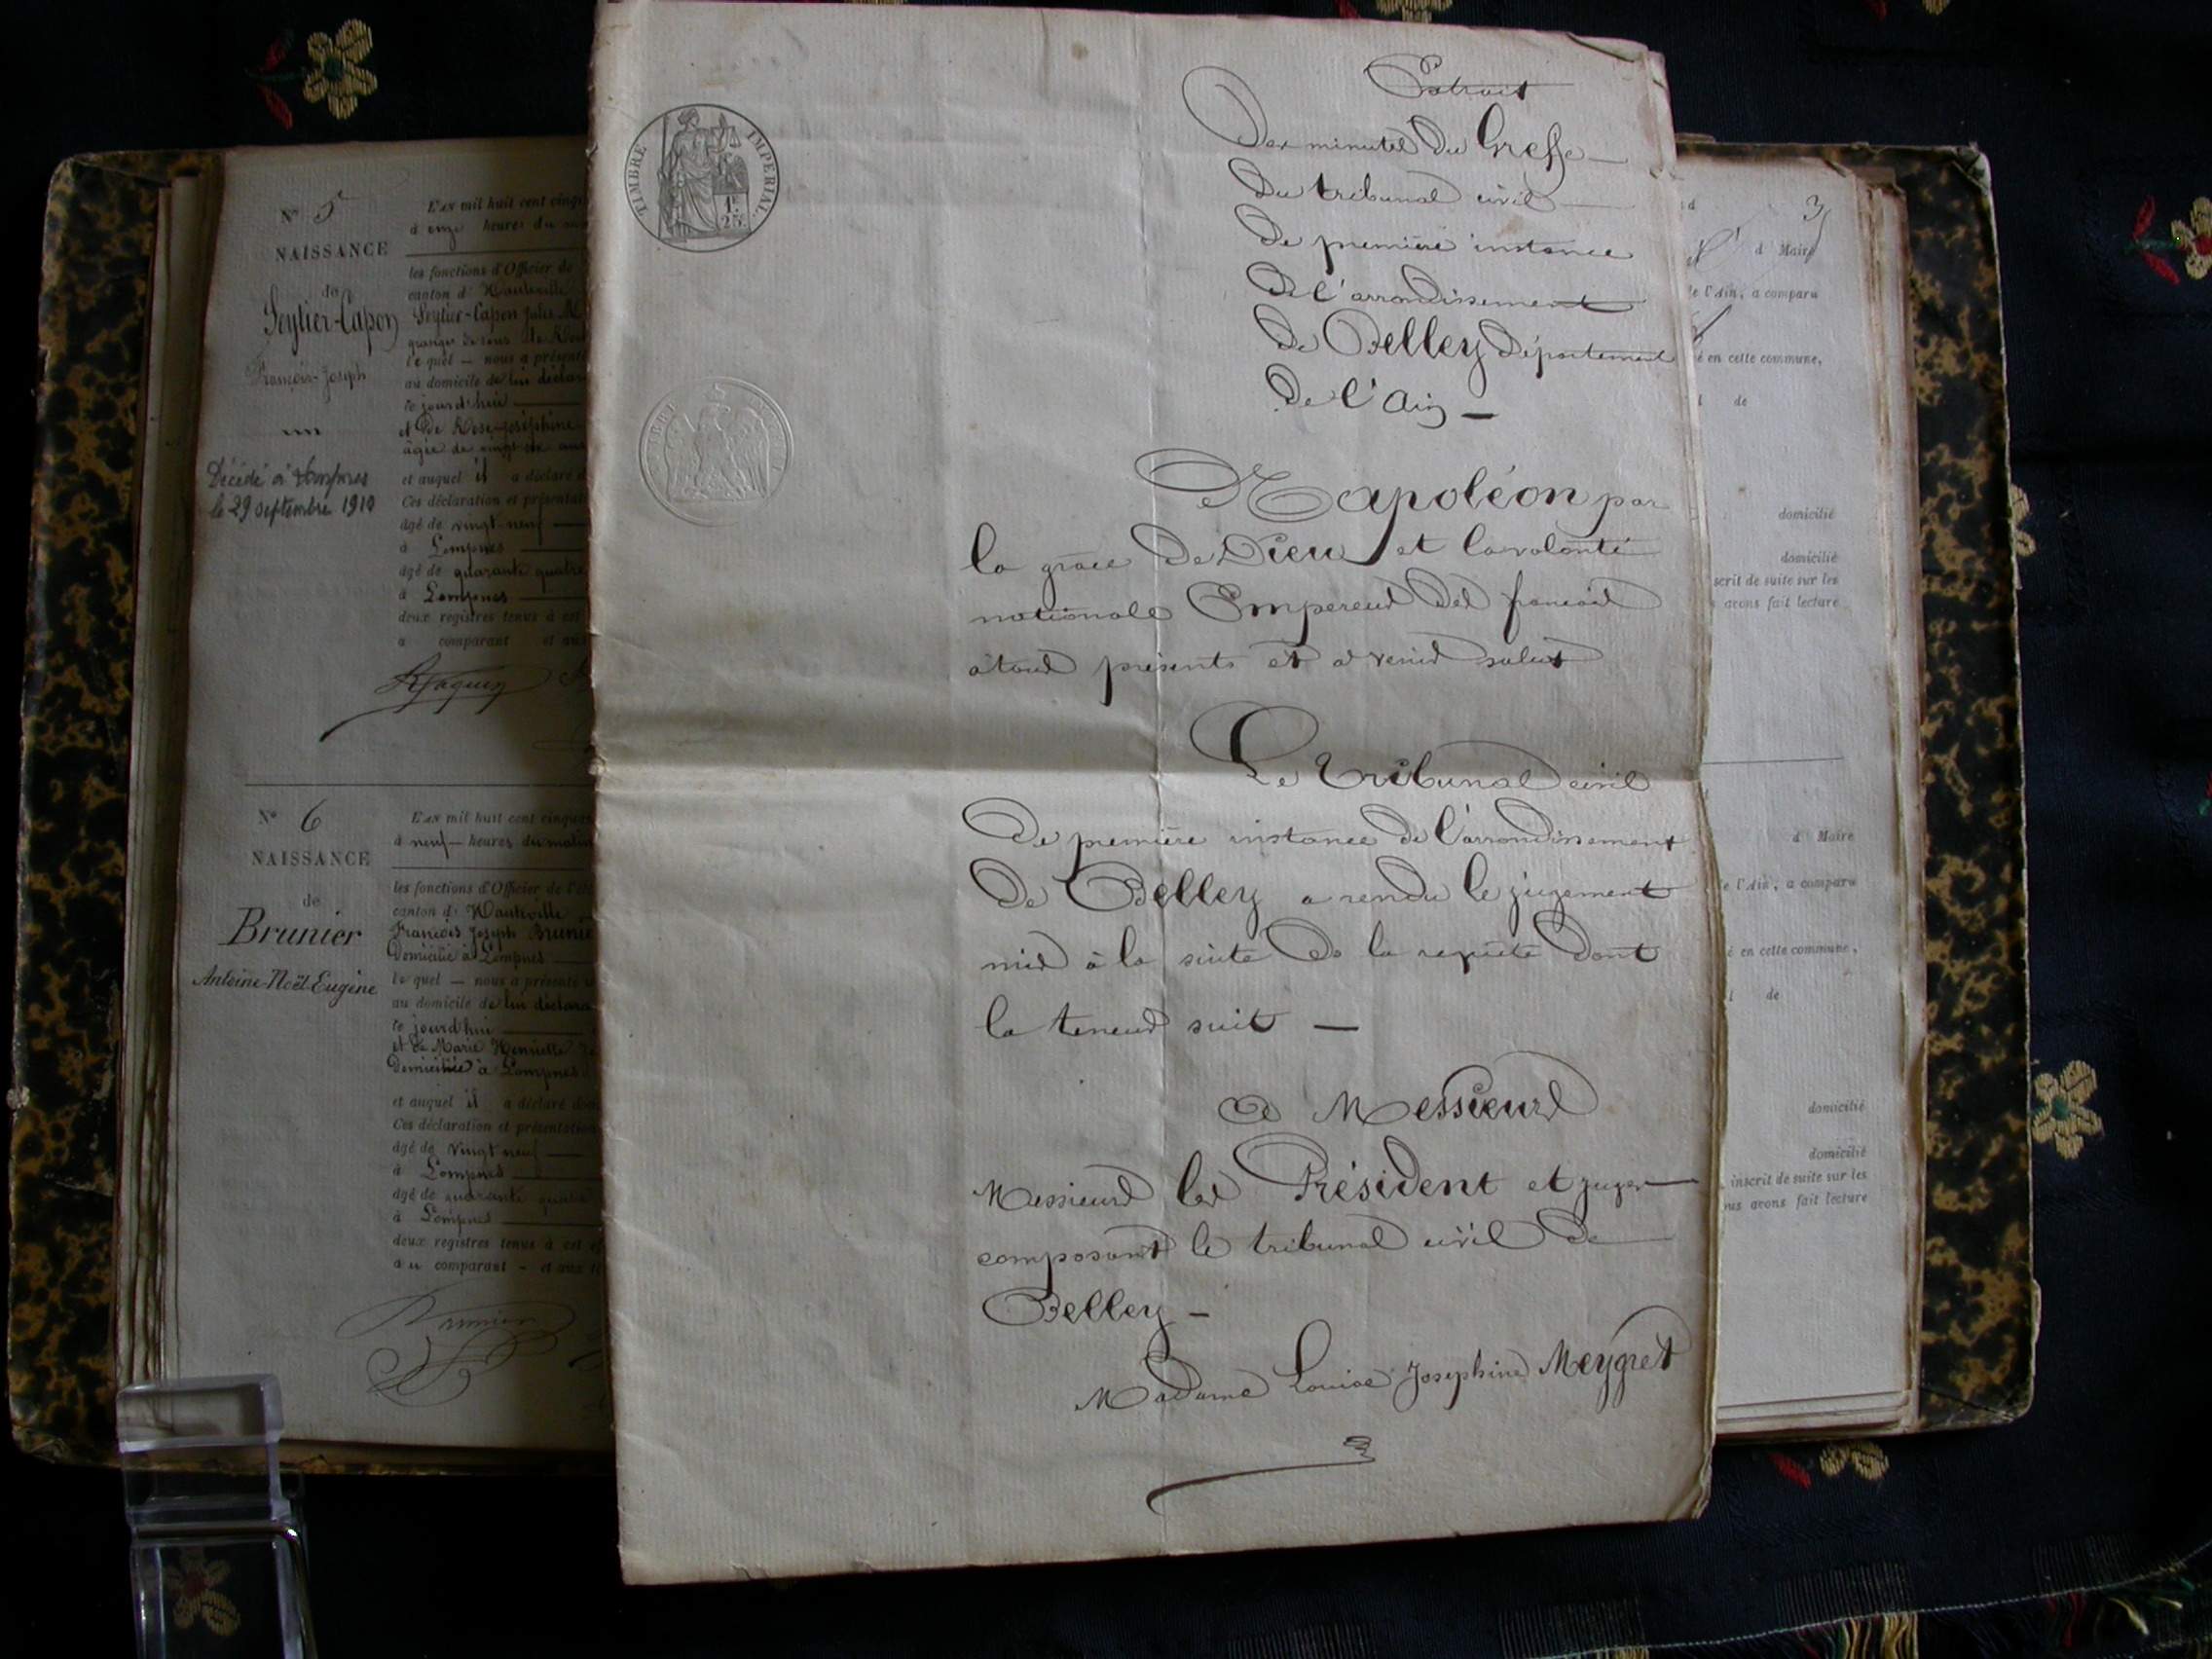 N° 5
NAISSANCE
de
Seytier-Capon
François-Joseph
Décédé à Lompnes
le 29 septembre 1910
L'AN mil huit cent cinqu
à onze heures du
les fonctions d'Officier de
canton d' Hauteville
Seytier-Capon
le quel — nous a présenté
au domicile de lui déclar
ce jourd'hui
et de Rose-Joséphine
âgée de vingt
et auquel il a déclaré
Ces déclaration et présentat
âgé de vingt-neuf
à Lompnes
âgé de quarante quatre
à Lompnes
deux registres tenus à cet
a comparant et aux
N° 6
NAISSANCE
de
Brunier
Antoine-Noël-Eugène
L'AN mil huit cent cinquan
à neuf heures du matin
les fonctions d'Officier de l'ét
canton d' Hauteville
François Joseph Brunie
Domicilié à Lompnes
le quel — nous a présenté
au domicile de lui déclara
ce jourd'hui
et de Marie Henriette
Domiciliée à Lompnes
et auquel il a déclaré
Ces déclaration et présentation
âgé de vingt neuf
à Lompnes
âgé de quarante quatre
à Lompnes
deux registres tenus à cet
au comparant - et aux
Brunier
TIMBRE IMPERIAL
1F
25c
Extrait
Des minutes du Greffe
du tribunal civil
de première instance
de l'arrondissement
de Belley département
de l'Ain
Napoléon par
la grâce de Dieu et la volonté
nationale Empereur des français
à tous présents et à venir salut
Le Tribunal civil
de première instance de l'arrondissement
de Belley a rendu le jugement
mis à la suite de la requête dont
la teneur suit —
A Messieurs
Messieurs les Président et juges
composant le tribunal civil de
Belley —
Madame Louise Joséphine Meygret
3
d Maire
e l'Ain, a comparu
é en cette commune,
de
domicilié
domicilié
scrit de suite sur les
s avons fait lecture
d Maire
e l'Ain, a comparu
é en cette commune,
de
domicilié
domicilié
inscrit de suite sur les
us avons fait lecture